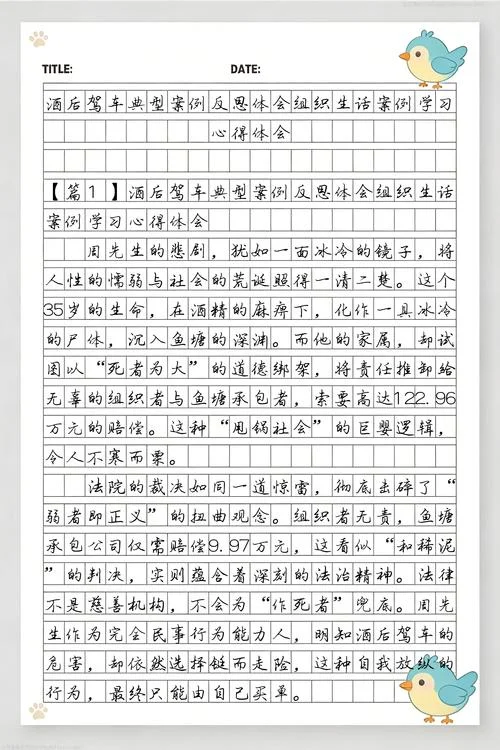 TITLE: DATE:
酒后驾车典型案例反思体会组织生活案例学习
心得体会
【篇1】酒后驾车典型案例反思体会组织生活
案例学习心得体会
周先生的悲剧，犹如一面冰冷的镜子，将
人性的懦弱与社会的荒诞照得一清二楚。这个
35岁的生命，在酒精的麻痹下，化作一具冰冷
的尸体，沉入鱼塘的深渊。而他的家属，却试
图以“死者为大”的道德绑架，将责任推卸给
无辜的组织者与鱼塘承包者，索要高达122.96
万元的赔偿。这种“甩锅社会”的巨婴逻辑，
令人不寒而栗。
法院的裁决如同一道惊雷，彻底击碎了“
弱者即正义”的扭曲观念。组织者无责，鱼塘
承包公司仅需赔偿9.97万元，这看似“和稀泥
”的判决，实则蕴含着深刻的法治精神。法律
不是慈善机构，不会为“作死者”兜底。周先
生作为完全民事行为能力人，明知酒后驾车的
危害，却依然选择铤而走险，这种自我放纵的
行为，最终只能由自己买单。